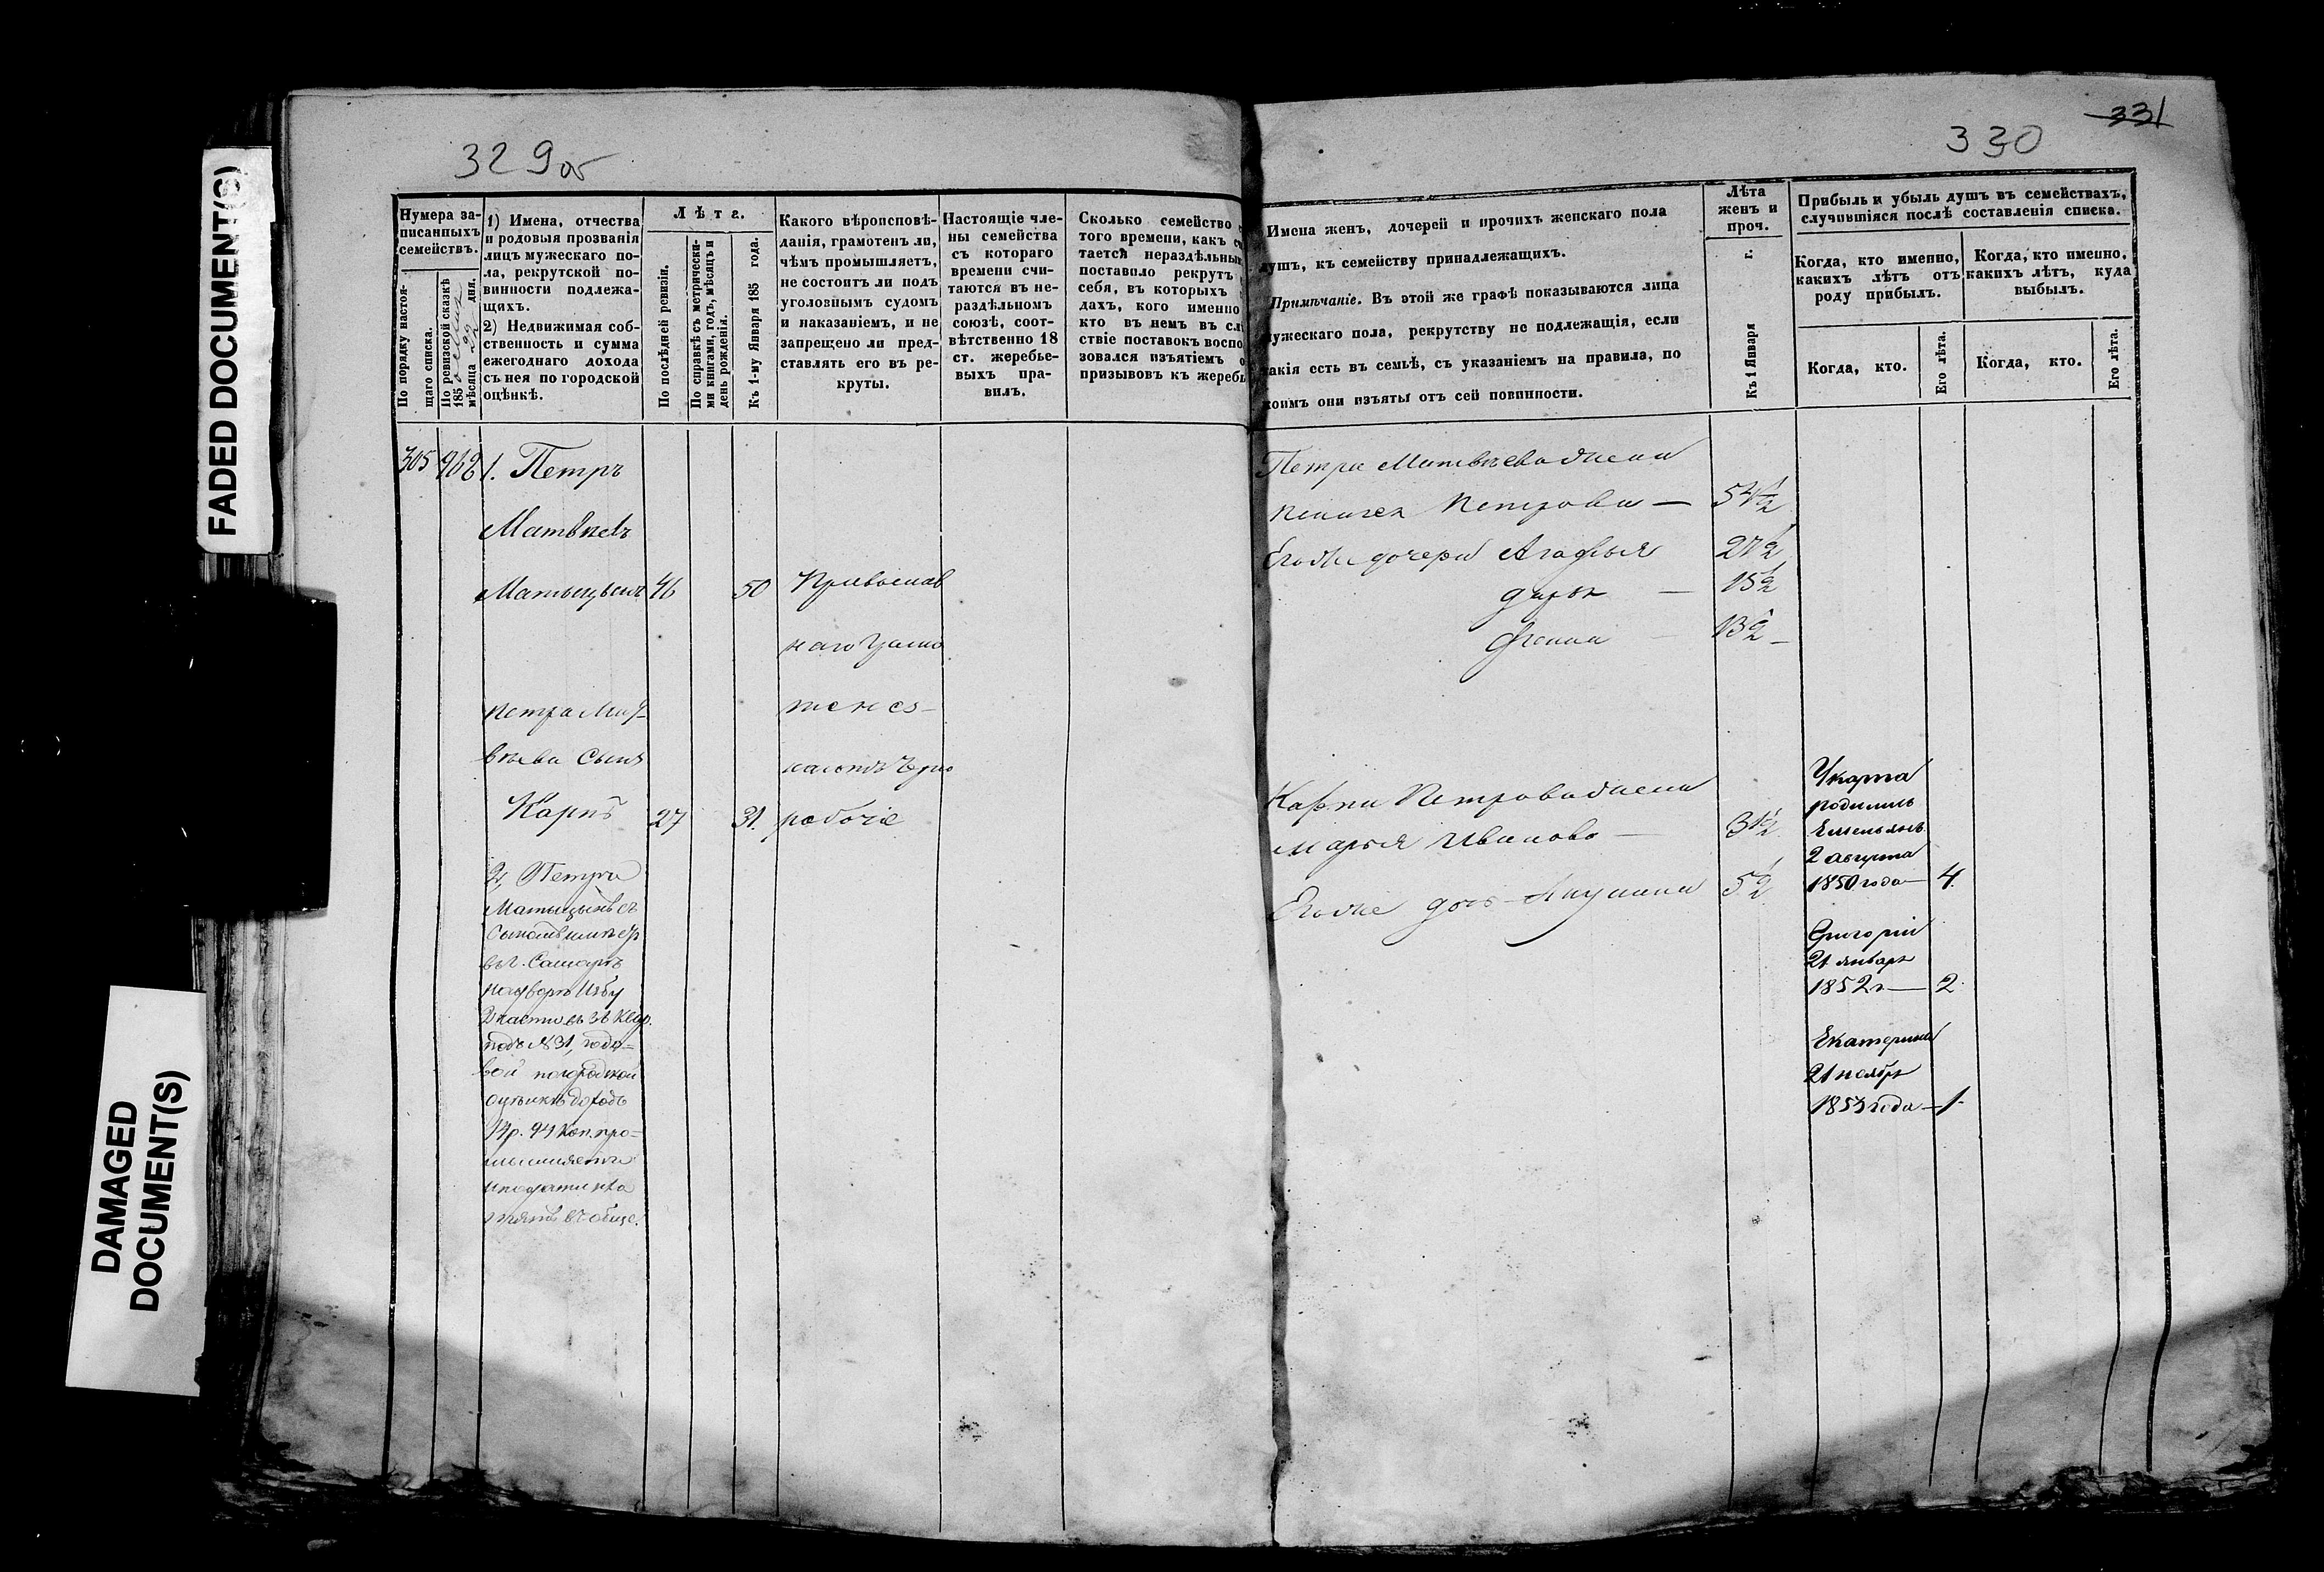 FADED DOCUMENT(S)
DAMAGED
DOCUMENT(S)
329 об
Нумера за-
писанныхъ
семействъ.
По порядку настоя-
щаго списка.
По ревизской сказкѣ
185
мѣсяца 22 дня.
1) Имена, отчества
и родовыя прозванія
лицъ мужескаго по-
ла, рекрутской по-
винности подлежа-
щихъ.
2) Недвижимая соб-
ственность и сумма
ежегоднаго дохода
съ нея по городской
оцѣнкѣ.
Лѣта.
По послѣдней ревизіи.
По справкѣ съ метрически-
ми книгами, годъ, мѣсяцъ и
день рожденія.
Къ 1-му Января 185 года.
Какого вѣроисповѣ-
данія, грамотенъ ли,
чѣмъ промышляетъ,
не состоитъ ли подъ
уголовнымъ судомъ
и наказаніемъ, и не
запрещено ли пред-
ставлять его въ ре-
круты.
Настоящіе чле-
ны семейства
съ котораго
времени счи-
таются въ не-
раздѣльномъ
союзѣ, соот-
вѣтственно 18
ст. жеребье-
выхъ пра-
вилъ.
Сколько семейство с
того времени, какъ сч
тается нераздѣльным
поставило рекрутъ
себя, въ которыхъ
дахъ, кого именно
кто въ немъ въ слѣ
ствіе поставокъ воспо
зовался изъятіемъ о
призывовъ къ жеребь
305 962 1. Петръ
Матвѣевъ
Матыцынъ 46 50 Православ
наго
Петра Мат-
вѣева сынъ
Карпъ 27 31. работіе
2, Петра
Матыцынъ съ
въ г. Самарѣ
на дворѣ избу
2 части въ 36 Квар.
подъ №31, годо-
вой по городской
оцѣнкѣ доходъ
коп. про-
мышляетъ
330
331
Имена женъ, дочерей и прочихъ женскаго пола
душъ, къ семейству принадлежащихъ.
Примѣчаніе. Въ этой же графѣ показываются лица
мужескаго пола, рекрутству не подлежащія, если
такія есть въ семьѣ, съ указаніемъ на правила, по
коимъ они изъяты отъ сей повинности.
Лѣта
женъ и
проч.
Къ 1 Января г.
Прибыль и убыль душъ въ семействахъ,
случившіяся послѣ составленія списка.
Когда, кто именно,
какихъ лѣтъ отъ
роду прибылъ.
Когда, кто именно,
какихъ лѣтъ, куда
выбылъ.
Когда, кто.
Его лѣта.
Когда, кто.
Его лѣта.
Петра Матвѣева жена
Петрова —
Его же дочери Агафья 27 1/2
Дарья — 15 1/2
13 1/2 —
Карпа Петрова жена
Марья Иванова — 31 1/2
Его же дочь Акулина 5 1/2
У карпа
родились
Емельянъ
2 августа
1850 года — 4.
Григорій
21 январь
1852 г — 2.
Екатерина
21 ноябрь
1853 года — 1.